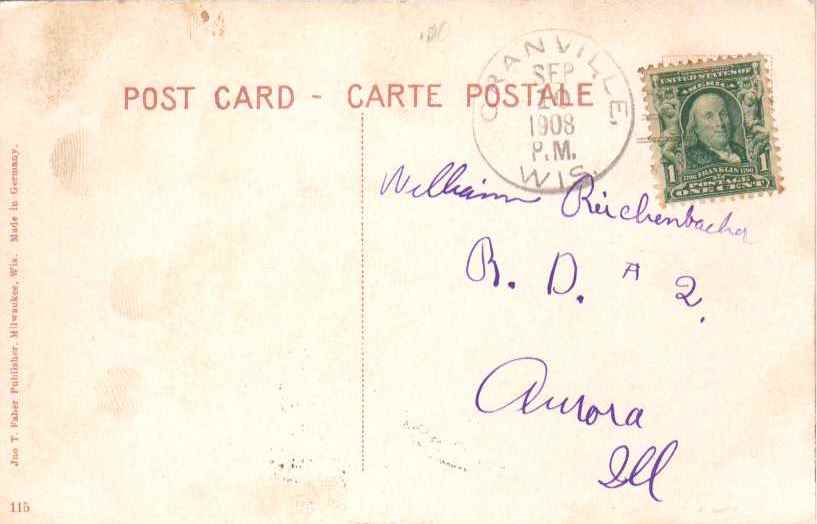 POST CARD - CARTE POSTALE
GRANVILLE,
SEP
1908
P.M.
WIS.
UNITED STATES OF
AMERICA
1 1706 FRANKLIN 1790 1
POSTAGE
ONE CENT
William Reichenbacher
R. D. # 2.
Aurora
Ill
Jno T. Faber Publisher, Milwaukee, Wis. Made in Germany.
115